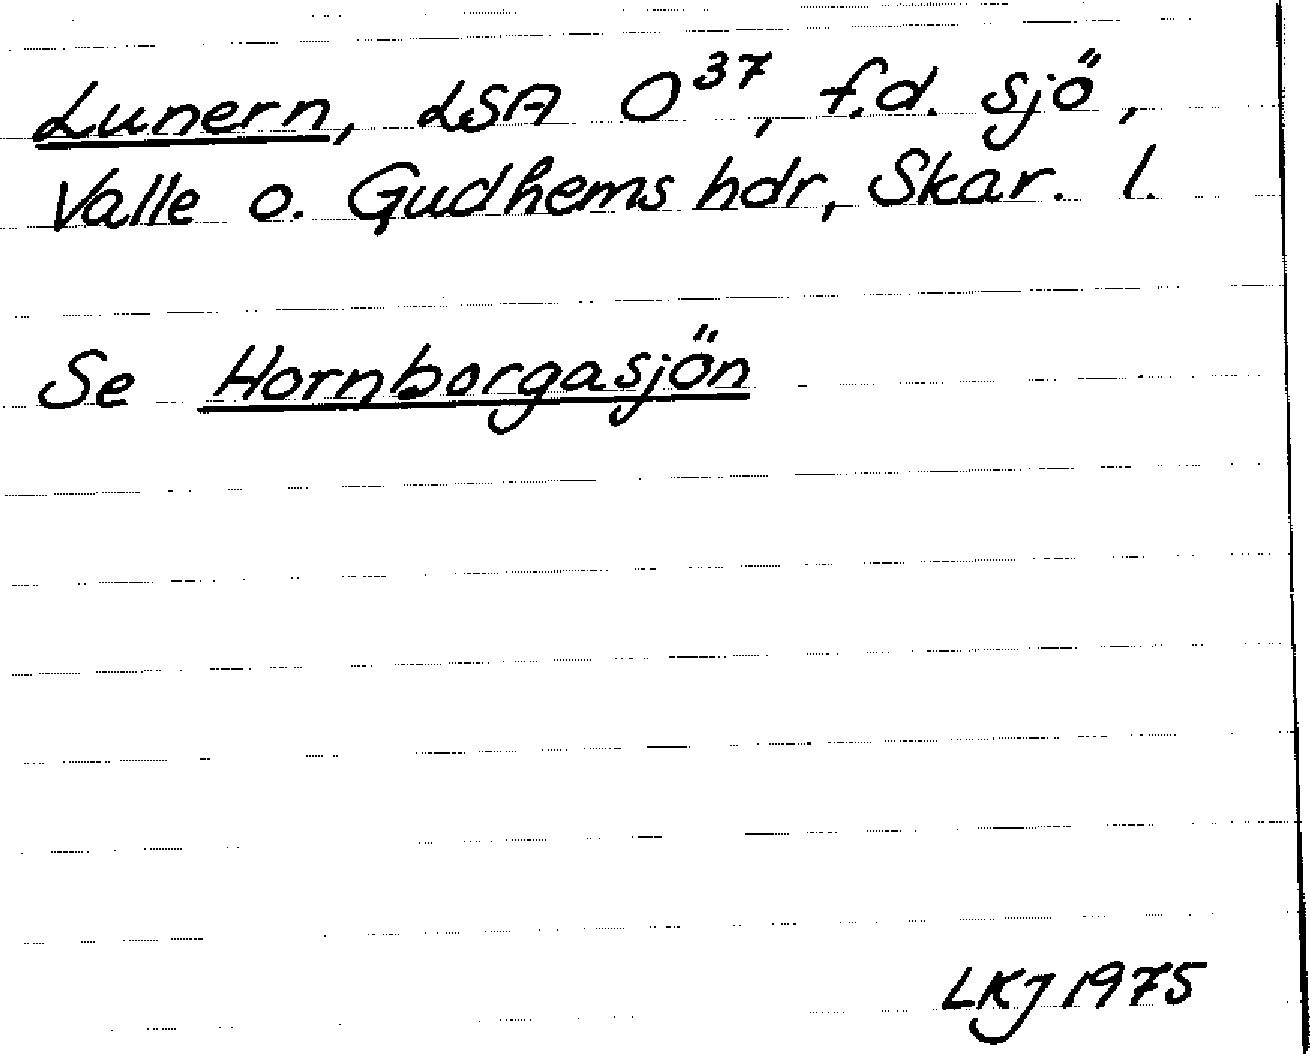 Lunern, LSA O³⁷, f.d. sjö,
Valle o. Gudhems hdr, Skar. l.
Se Hornborgasjön
LKJ 1975